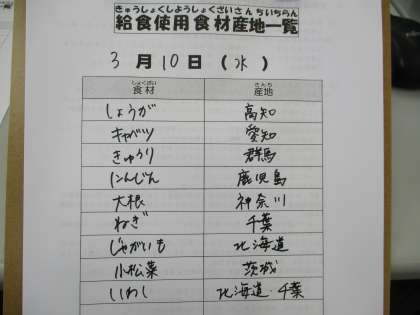 きゅうしょくしようしょくざいさんちいちらん
給食使用食材産地一覧
3月10日(水)
しょくざい さんち
食材 産地
しょうが 高知
キャベツ 愛知
きゅうり 群馬
にんじん 鹿児島
大根 神奈川
ねぎ 千葉
じゃがいも 北海道
小松菜 茨城
いわし 北海道・千葉